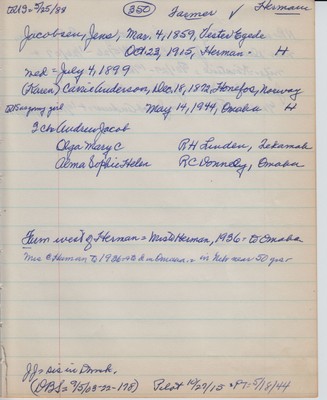 (350) Farmer ✓ Hermann
Jacobsen, Jens, Mar. 4, 1859, Vester Egede
Oct 23, 1915, Herman - H
med = July 4, 1899
(Karen) Carrie Anderson, Dec. 18, 1872, Honefos, Norway
May 14, 1944, Omaha H
3 ch: Andrew Jacob
Olga Mary C R H Linden, Tekamah
Alma Sophie Helen R C Donnelly, Omaha
Farm west of Herman = Mrs to Herman, 1936 - to Omaha
Mrs @ Herman to 1936 + to in Omaha. + in Neb near 50 year
JJ = sis in Dmk.
(OBS = 9/5/63-22-178) Pilot 10/27/15 + PT = 5/18/44